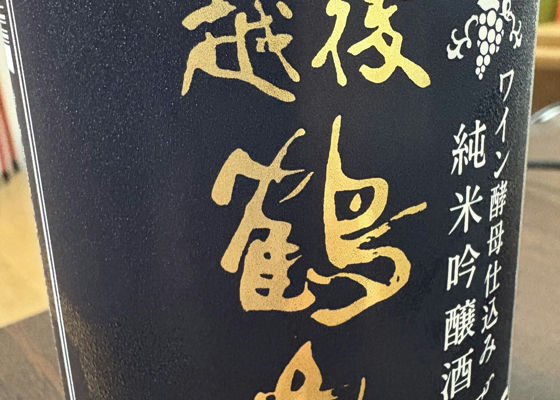 ワイン酵母仕込み
純米吟醸酒
越後
鶴